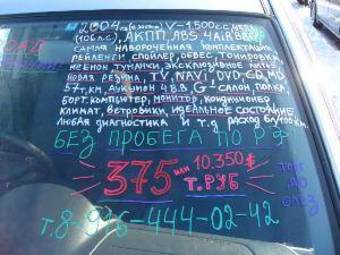 2004 г.в. V-1500cc
(110 л.с.), АКПП, ABS, 4 AIRBAG
САМАЯ НАВОРОЧЕННАЯ КОМПЛЕКТАЦИЯ
РЕЙЛЕНГИ СПОЙЛЕР, ОБВЕС, ТОНИРОВКА
КСЕНОН ТУМАНКИ ЭКСКЛЮЗИВНОЕ ЛИТЬЁ
НОВАЯ РЕЗИНА, TV, NAVI, DVD, CD, MD
57т.км, АУКЦИОН 4ВВ, G-САЛОН, ПОЛКА,
БОРТ.КОМПЬЮТЕР, МОНИТОР, КОНДИЦИОНЕР
КЛИМАТ, ВЕТРОВИКИ, ИДЕАЛЬНОЕ СОСТОЯНИЕ
ЛЮБАЯ ДИАГНОСТИКА И Т.Д РАСХОД
БЕЗ ПРОБЕГА ПО РФ
375 ИЛИ 10.350$
Т.РУБ
ТОРГ
ДО
СЛЁЗ
т.8-916-444-02-42